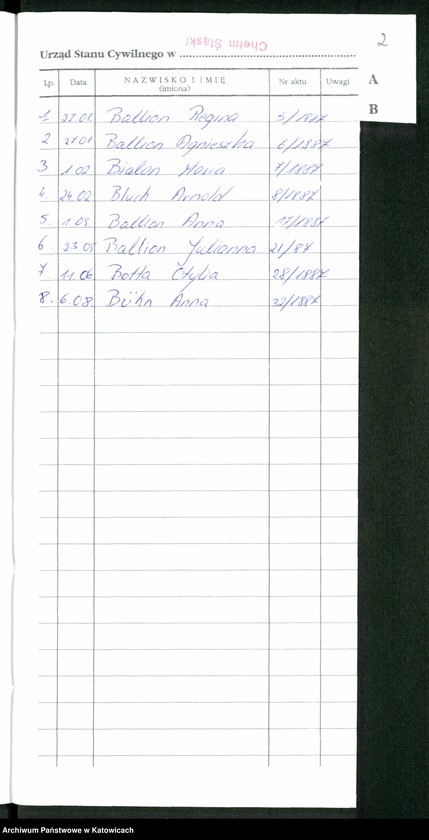 2
Chełm Śląski
Urząd Stanu Cywilnego w
Lp. Data NAZWISKO I IMIĘ (imiona) Nr aktu Uwagi
A
B
1 27.01 Ballion Regina 5/1887
2 27.01 Ballion Agnieszka 6/1887
3 1.02 Bialon Maria 7/1887
4. 24.02 Bluch Arnold 8/1887
5. 1.05 Ballion Anna 17/1887
6. 23.05 Ballion Julianna 21/87
7 11.06 Botta Otylia 28/1887
8. 6.08 Bühn Anna 32/1887
Archiwum Państwowe w Katowicach